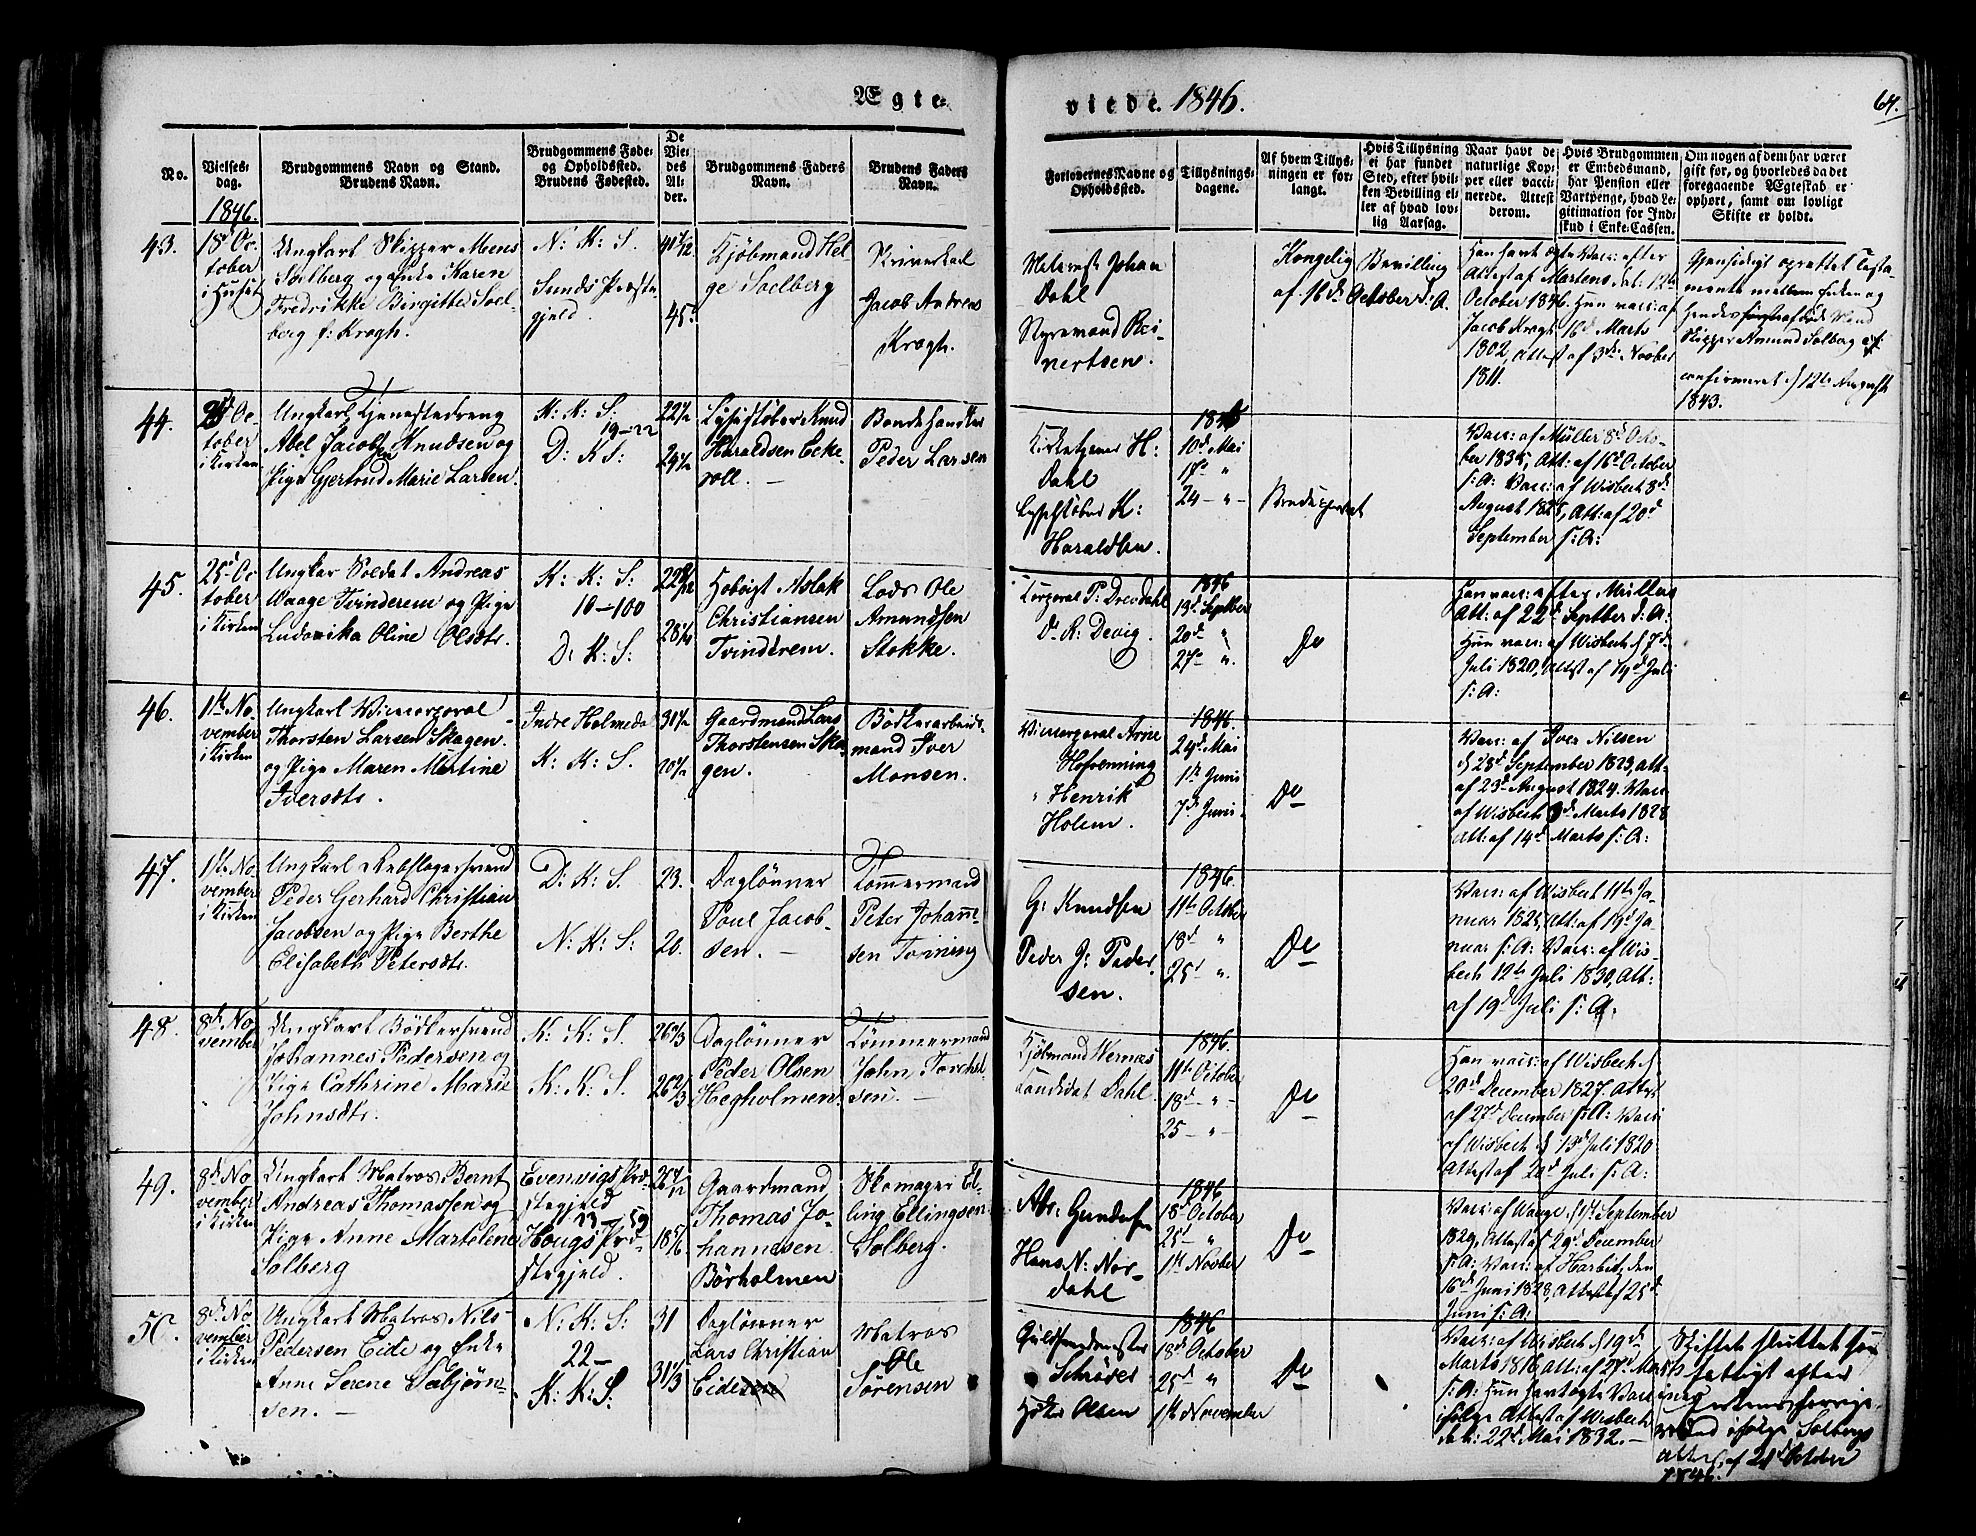 Ægte-
viede. 1846.
64.
No.
Vielses-
dag.
1846.
Brudgommens Navn og Stand.
Brudens Navn.
Brudgommens Føde-
og Opholdssted.
Brudens Fødested.
De
Vie-
des
Al-
der.
Brudgommens Faders
Navn.
Brudens Faders
Navn.
Forlovernes Navne og
Opholdssted.
Tillysnings-
dagene.
Af hvem Tillys-
ningen er for-
langt.
Hvis Tillysning
ei har fundet
Sted, efter hvil-
ken Bevilling el-
ler af hvad lov-
lig Aarsag.
Naar havt de
naturlige Kop-
per eller vacci-
nerede. Attest
derom.
Hvis Brudgommen
er Embedsmand,
har Pension eller
Vartpenge, hvad Le-
gitimation for Ind-
skud i Enke-Cassen.
Om nogen af dem har været
gift før, og hvorledes da det
foregaaende Ægteskab er
ophørt, samt om lovligt
Skifte er holdt.
43.
18d Oc-
tober
i Huset
Ungkarl Skipper Mons
Solberg og Enke Karen
Fredrikke Birgitte Sol-
berg f: Krogh.
N: K: S.
Sunds Præste-
gjeld.
45.
Kjøbmand Hel-
ge Soelberg
Jacob Andreas
Krogh.
Johan
Dahl
Rei-
nertsen.
Kongelig Bevilling
af 16d October d. A.
Attest af Martens dat: 12te
October 1846. Hun vacc: af
Jacob Krogh 16d Marts
1802, Attest af 3d Novber
1811.
Gjensidigt oprettet Testa-
mente mellem Enken og
hendes afdøde Mand
Skipper Amund Solberg
confirmeret d 12te August
1843.
44.
25d Oc-
tober
i Kirken
Ungkarl Tjenestedreng
Abel Jacob Knudsen og
Pige Gjertrud Marie Larsen.
K: K: S:
19-22
D: K: S:
22 1/2
24 1/2
Knud
Haraldsen Ecke-
roll. —
Bonde
Peder Larsen
Kirketjener H:
Dahl
K:
Haraldsen.
1846
10d Mai
17d "
24 - " -
Brudeparret
Vacc: af Müller 8d Octo-
ber 1835, Att: af 16d October
s: A: Vacc: af Wisbech 8d
August 1825, Att: af 20d
September s: A:
45.
25d Oc-
tober
i Kirken
Ungkar Soldat Andreas
Waage Tvinderem og Pige
Ludovika Oline Olsdtr.
K: K: S:
10-100
D: K: S:
28 1/4
Aslak
Christiansen
Tvinderem.
Lods Ole
Amundsen
Stokke.
Corporal P: Drevdahl
Do R: Devig.
1846
13d Septber
20d "
27- ".
Do
Han vacc: efter Müllers
Att: af 22d Septber d: A:
Hun vacc: af Wisbech d 7d
Juli 1820, Attest af 19d Juli
s: A:
46.
1ste No-
vember
i Kirken
Ungkarl Vicecorporal
Thorsten Larsen Skagen.
og Pige Maren Martine
Iversdtr.
Indre Holmedal
K: K: S.
31 1/2
20 1/2
Gaardmand Lars
Thorstensen Ska-
gen.
Bødkerarbeids-
mand Iver
Monsen.
Vicecorporal Arne
Henrik
Holem.
1846
24d Mai
1ste Juni
7d Juni
Do
Vacc: af Iver Nilsen
d 28d September 1823, att:
af 23d August 1824. Vacc:
af Wisbech 3d Marts 1828
Att: af 14d Marts s: A:
47.
1ste No-
vember
i Kirken
Ungkarl Rebslagersvend
Peder Gerhard Christian
Jacobsen og Pige Berthe
Elisabeth Petersdtr.
D: K: S.
N: K: S:
23.
20.
Daglønner
Poul Jacob-
sen. —
Tømmermand
Peter Johann-
sen Torning
G: Knudsen
Peder J: Peder-
sen.
1846.
11te October
18d "
25d ".
Do
Vacc: af Wisbech 11te Ja-
nuar 1825, Att: af 19d Ja-
nuar s: A: Vacc: af Wis-
bech 12te Juli 1830, Att:
af 19d Juli s: A:
48.
8d No-
vember
Ungkarl Bødkersvend
Johannes Pedersen og
Pige Cathrine Marie
Johnsdtr.
K: K: S.
K: K: S.
26 2/3
26 2/3
Daglønner
Peder Olsen
Hegholmen.
Tømmermand
John Torchel-
sen. —
Kjøbmand Wernas
Candidat Dahl
1846.
11te October
18d - " -
25 - " -
Do
Han vacc: af Wisbech d
20d December 1827. Attest
af 27d December s: A: Vacc:
af Wisbech d 13d Juli 1820
Attest af 20d Juli s: A:
49.
8d No-
vember
i Kirken
Ungkarl Matros Bernt
Andreas Thomassen og
Pige Anne Martelene
Solberg
Evenvigs Præ-
stegjeld
23-59
Hougs Præ-
stegjeld.
18 5/6
Gaardmand
Thomas Jo-
hannesen
Børholmen
Skomager El-
ling Ellingsen
Solberg.
Abr: Gundersen
Hans N: Nor-
dahl
1846
18d October
25d "
1ste Novber
Do
Vacc: af Waage d 1ste September
1829, Attest af 29d December
s: A: Vacc: af Harbitz, den
16d Juni 1828, Attest af 25d
Juni s: A:
50.
8d No-
vember
i Kirken
Ungkarl Matros Nils
Pedersen Eide og Enke
Anne Serene Sæbjørn-
sen. —
N: K: S:
22-
K: K: S.
31
31 1/3
Daglønner
Lars Christian
Eidesen
Matros
Ole
Sørensen
Guldsmedmester
Schrøder
Olsen
1846
18d October
25d "
1ste November
Do
Vacc: af Wisbech d 19d
Marts 1816 Att: af 27d Marts
s: A: Hun foretogte Vacc:
ifølge Attest af Wisbech
dat: 22d Mai 1832. —
Skiftet sluttet som
fattigt efter
Enkens forrige
Mand ifølge Solbergs
Attest af 21d October
1846.